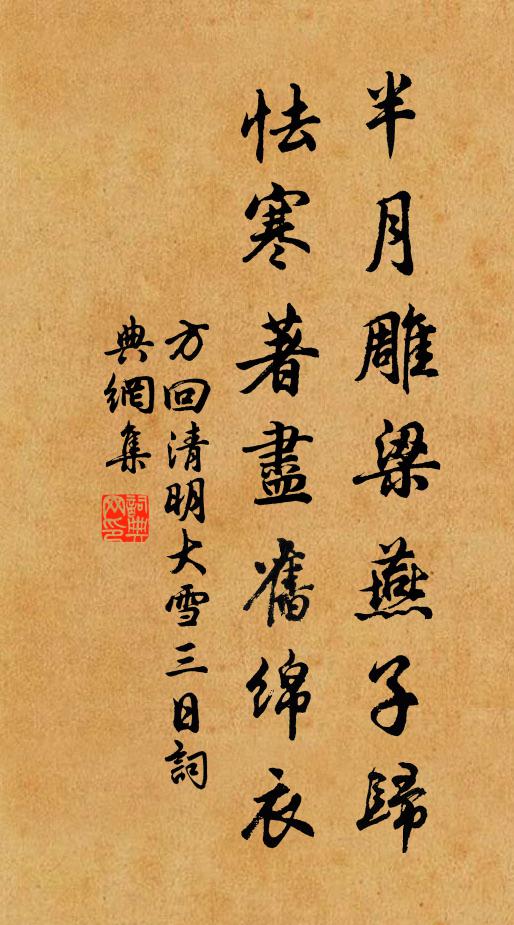 半月雕梁燕子歸
怯寒著盡舊綿衣
方回清明大雪三日詞
典網集
詞典
網印